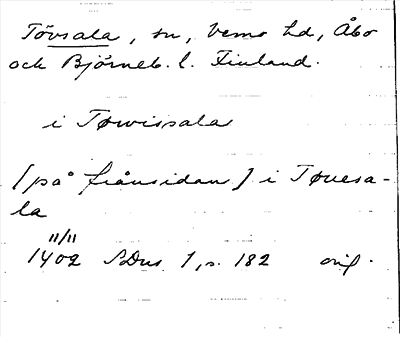 Tövsala, sn, Vemo hd, Åbo
och Björneb. l. Finland.
i Tøwissala
[på frånsidan] i Tøuesa-
la
11/11
1402 SDns 1, s. 182 orig.